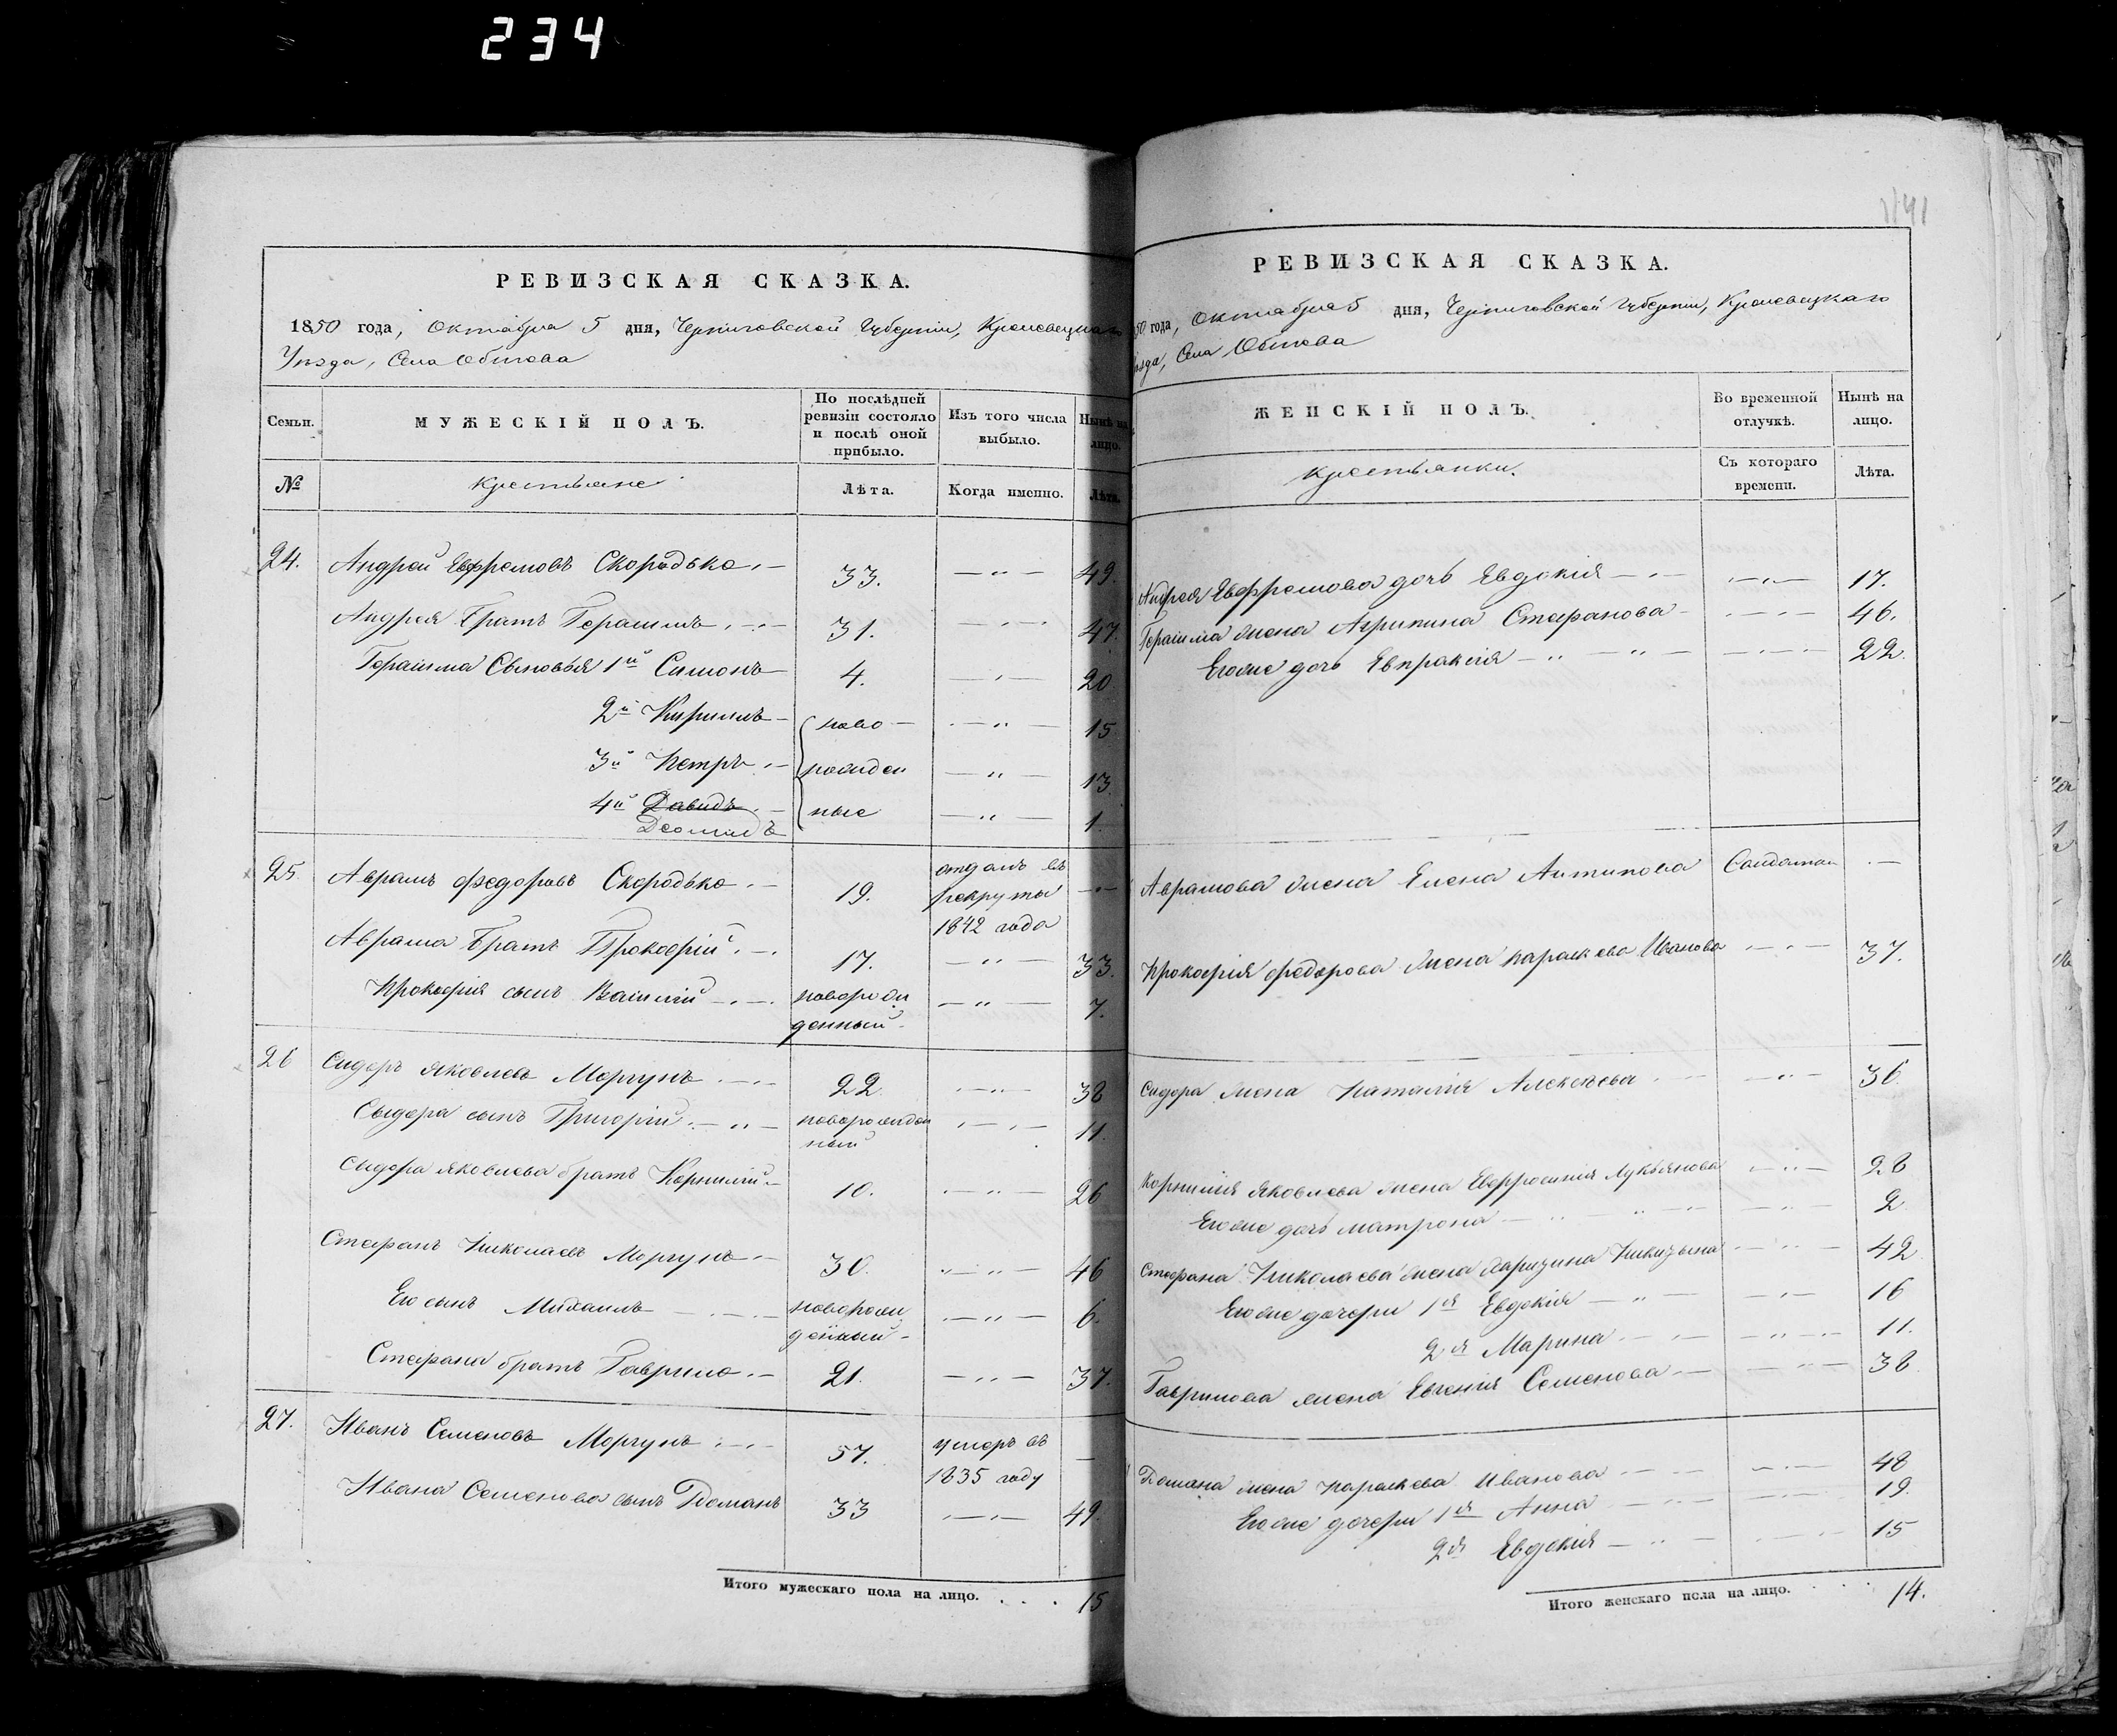 234
РЕВИЗСКАЯ СКАЗКА.
1850 года, Октября 5 дня, Черниговской Губерніи, Кролевецкаго
Уѣзда, Села Обтова
Семьи.
МУЖЕСКІЙ ПОЛЪ.
По послѣдней ревизіи состояло и послѣ оной прибыло.
Изъ того числа выбыло.
Нынѣ на лицо.
№
Крестьяне
Лѣта.
Когда именно.
Лѣта.
24. Андрей Евфремовъ Скородько 33. 49.
Андрея Братъ Герасимъ 31. 47.
Герасима Сыновья 1й Симонъ 4. 20
2й Кирилъ ново 15
3й Петръ рожден 13.
4й Давидъ ные 1.
Деомидъ
25. Аврамъ Федоровъ Скородько 19. отданъ въ
рекруты
1842 года
Аврама Братъ Прокофій 17. 33.
Прокофія сынъ Василій новорож 7.
денный
26 Сидоръ Яковлевъ Моргунъ 22 38
Сыдора сынъ Григорій новорожден 11.
ный
Сидора Яковлева братъ Корнилій 10. 26
Стефанъ Николаевъ Моргунъ 30. 46
Его сынъ Михаилъ новорож 6.
денный
Стефана братъ Гаврило 21. 37.
27. Иванъ Семеновъ Моргунъ 57. умеръ въ
1835 году
Ивана Семенова сынъ Романъ 33 49.
Итого мужескаго пола на лицо. . . . 15
1141
РЕВИЗСКАЯ СКАЗКА.
50 года, Октября 5 дня, Черниговской Губерніи, Кролевецкаго
ѣзда, Села Обтова
ЖЕНСКІЙ ПОЛЪ.
Во временной отлучкѣ.
Нынѣ на лицо.
Крестьянки.
Съ котораго времени.
Лѣта.
Андрея Евфремова дочь Евдокія 17.
Герасима жена Агрипина Стефанова 46.
Его же дочь Евпраксія 22.
Аврамова жена Елена Антипова Солдатка
Прокофія Федорова жена Параскева Иванова 37.
Сидора жена Наталія Алексѣева 36
Корнилія Яковлева жена Евфросинія Лукьянова 28
Его же дочь Матрона 2
Стефана Николаева жена Никизьина 42
Его же дочери 1я Евдокія 16
2я Марина 11.
Гаврилова жена Евгенія Семенова 38
Романа жена Параскева Иванова 48
Его же дочери 1я Анна 19.
2я Евдокія 15
Итого женскаго пола на лицо. . . . 14.